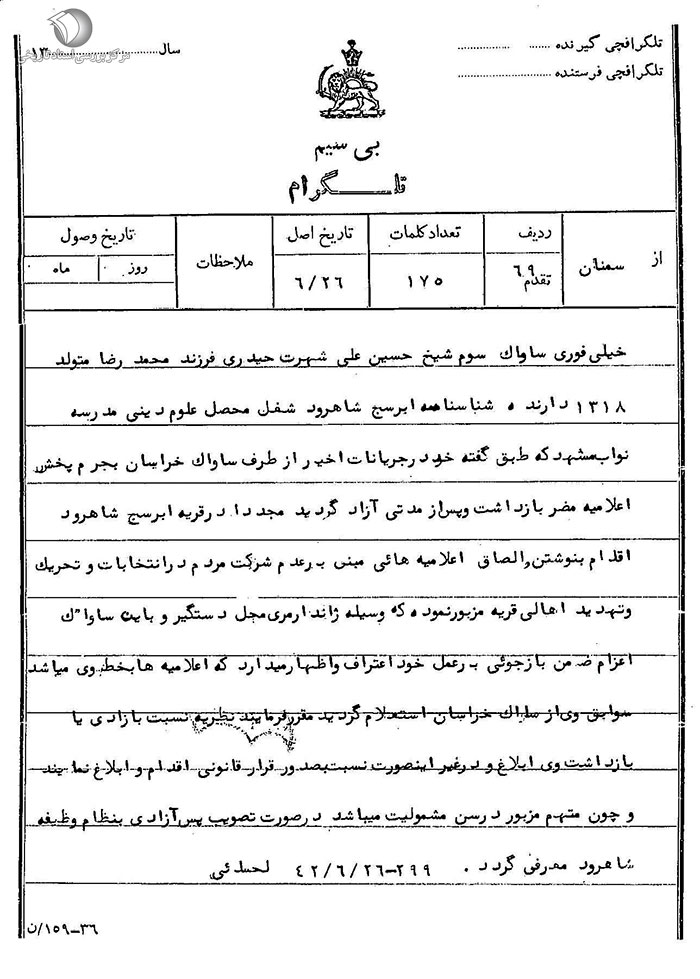 مرکز بررسی اسناد تاریخی
تلگرافچی گیرنده ........
تلگرافچی فرستنده ........
سال ........ ۱۳
بی سیم
تلگرام
از سمنان
ردیف ۶۹ تقدم
تعداد کلمات ۱۷۵
تاریخ اصل ۶/۲۶
ملاحظات
تاریخ وصول
روز ماه
خیلی فوری ساواك سوم شیخ حسین علی شهرت حیدری فرزند محمد رضا متولد
۱۳۱۸ دارنده شناسنامه ابرسج شاهرود شغل محصل علوم دینی مدرسه
نواب مشهد که طبق گفته خود در جریانات اخیر از طرف ساواك خراسان بجرم پخش
اعلامیه مضر بازداشت و پس از مدتی آزاد گردید مجددا در قریه ابرسج شاهرود
اقدام بنوشتن و الصاق اعلامیه هائی مبنی بر عدم شرکت مردم در انتخابات و تحریك
و تهدید اهالی قریه مزبور نموده که وسیله ژاندارمری محل دستگیر و باین ساواك
اعزام ضمن بازجوئی بر عمل خود اعتراف و اظهار میدارد که اعلامیه ها بخط وی میباشد
سوابق وی از ساواك خراسان استعلام گردید مقرر فرمایند نظریه نسبت بازادی یا
بازداشت وی ابلاغ و در غیر اینصورت نسبت بصدور قرار قانونی اقدام و ابلاغ نمایند
و چون متهم مزبور در سن مشمولیت میباشد در صورت تصویب پس آزادی بنظام وظیفه
شاهرود معرفی گردد . ۲۹۹-۴۲/۶/۲۶
۳۶-۱۵۹/ن